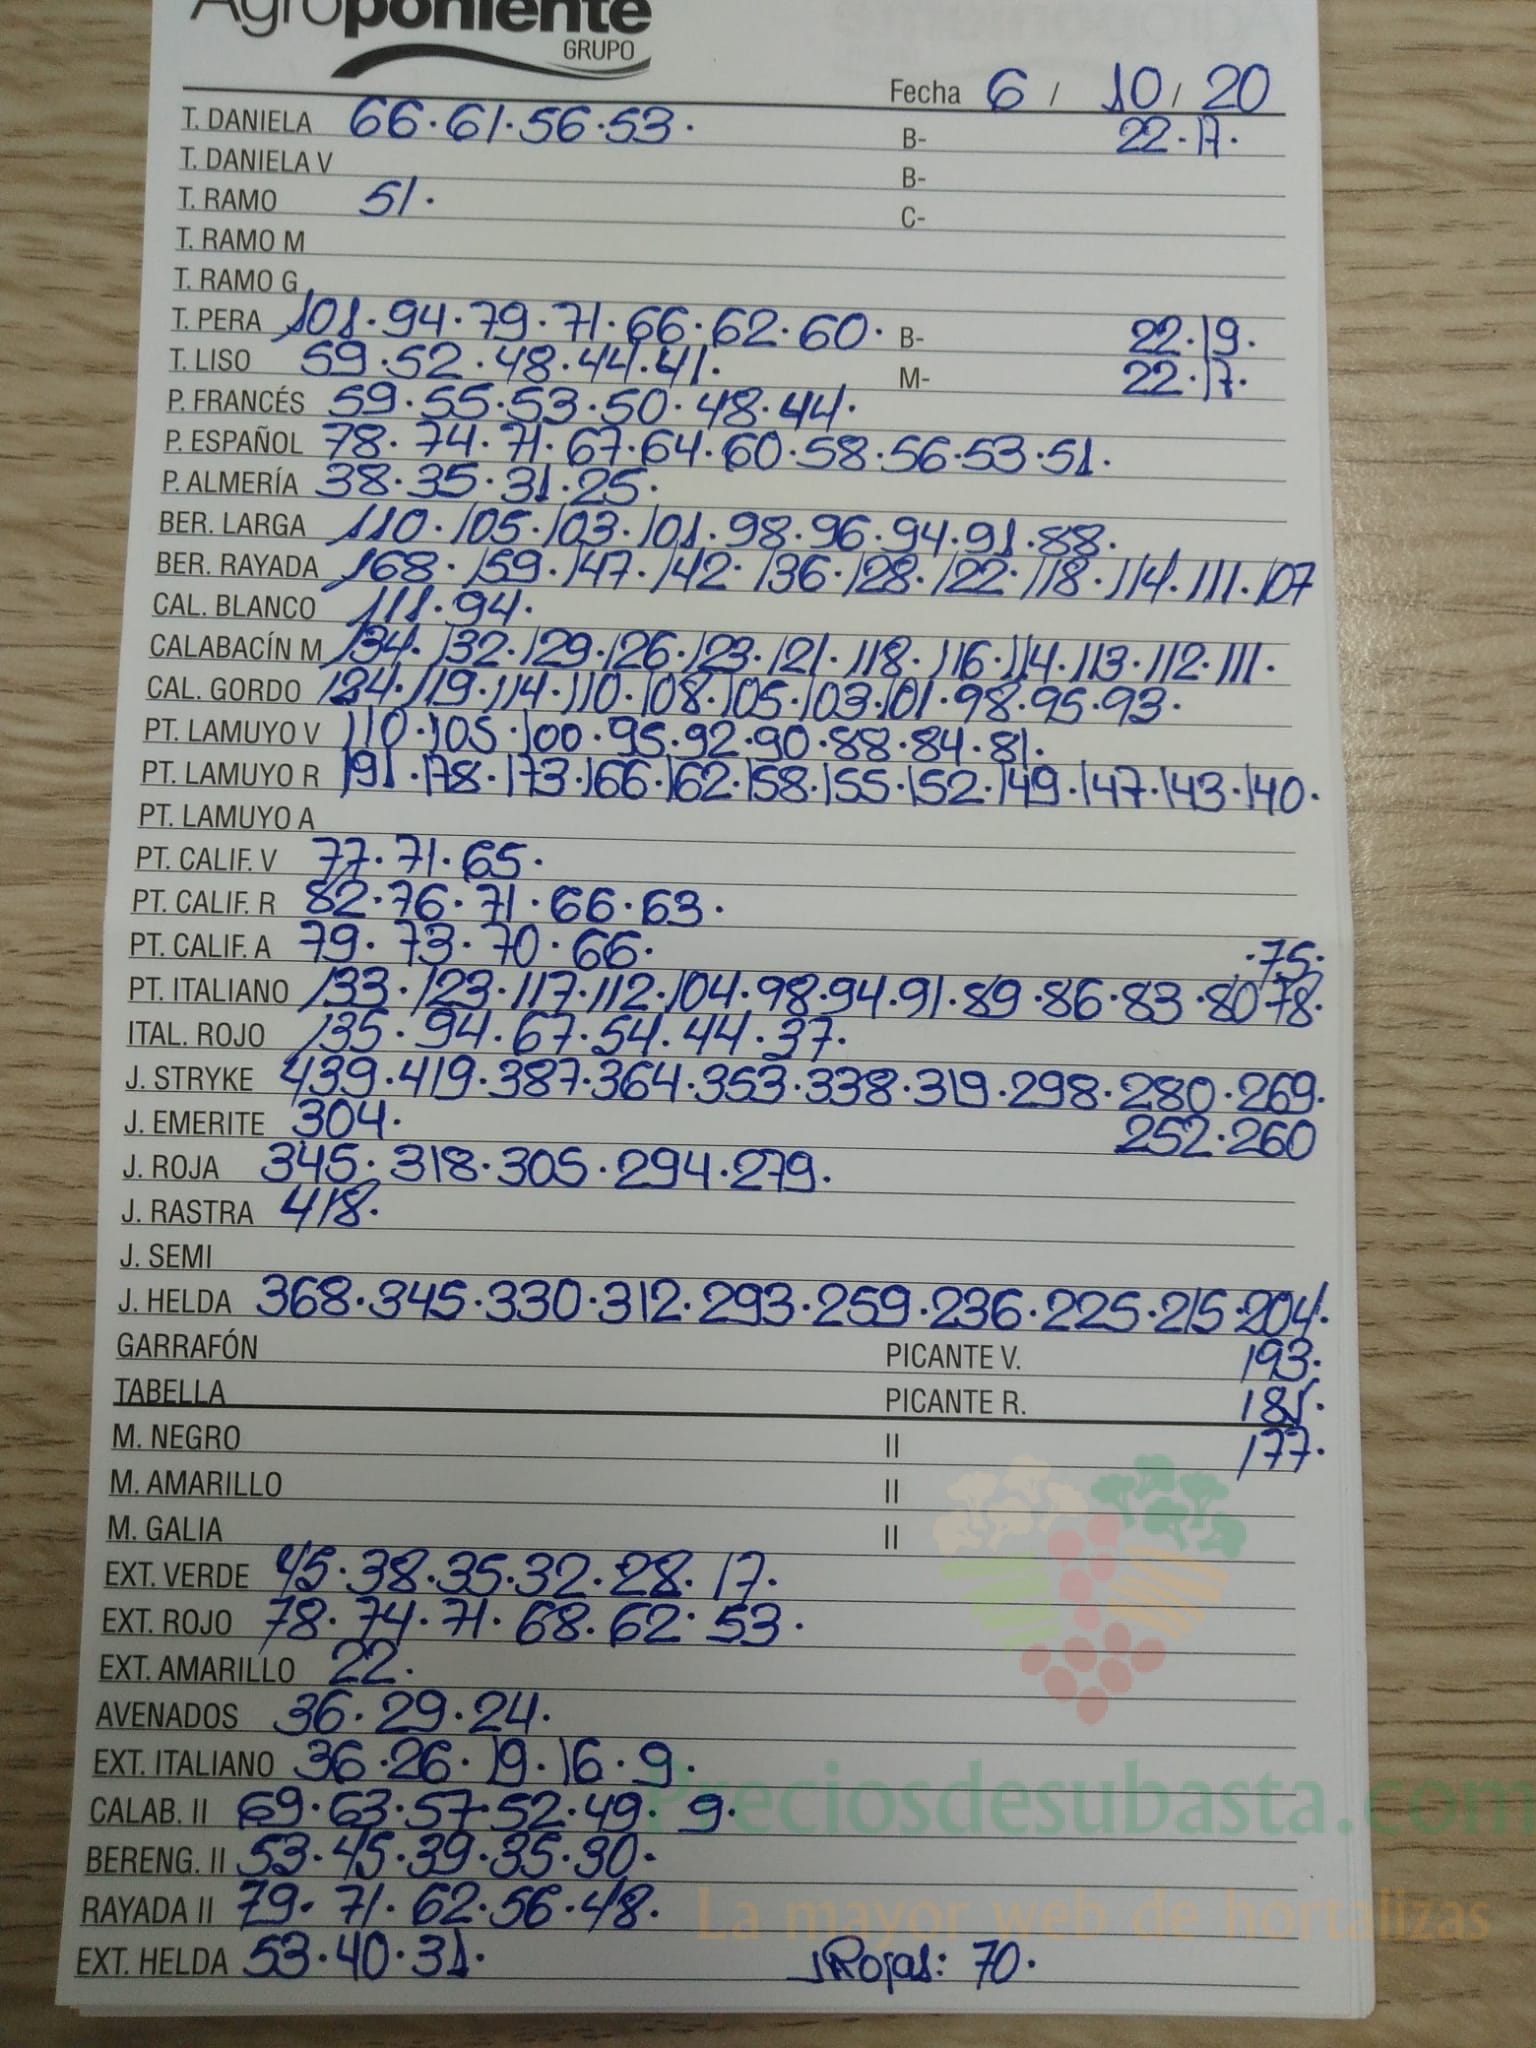 Agroponiente
GRUPO
Fecha 6 / 10 / 20
T. DANIELA 66.61.56.53. B- 22.17.
T. DANIELA V B-
T. RAMO 51. C-
T. RAMO M
T. RAMO G
T. PERA 101.94.79.71.66.62.60. B- 22.19.
T. LISO 59.52.48.44.41. M- 22.17.
P. FRANCÉS 59.55.53.50.48.44.
P. ESPAÑOL 78.74.71.67.64.60.58.56.53.51.
P. ALMERÍA 38.35.31.25.
BER. LARGA 110.105.103.101.98.96.94.91.88.
BER. RAYADA 168.159.147.142.136.128.122.118.114.111.107
CAL. BLANCO 111.94.
CALABACÍN M 134.132.129.126.123.121.118.116.114.113.112.111.
CAL. GORDO 124.119.114.110.108.105.103.101.98.95.93.
PT. LAMUYO V 110.105.100.95.92.90.88.84.81.
PT. LAMUYO R 191.178.173.166.162.158.155.152.149.147.143.140.
PT. LAMUYO A
PT. CALIF. V 77.71.65.
PT. CALIF. R 82.76.71.66.63.
PT. CALIF. A 79.73.70.66. .75.
PT. ITALIANO 133.123.117.112.104.98.94.91.89.86.83.80 78.
ITAL. ROJO 135.94.67.54.44.37.
J. STRYKE 439.419.387.364.353.338.319.298.280.269.
J. EMERITE 304. 252.260
J. ROJA 345.318.305.294.279.
J. RASTRA 418.
J. SEMI
J. HELDA 368.345.330.312.293.259.236.225.215.204.
GARRAFÓN PICANTE V. 193.
TABELLA PICANTE R. 181.
M. NEGRO II 177.
M. AMARILLO II
M. GALIA II
EXT. VERDE 45.38.35.32.28.17.
EXT. ROJO 78.74.71.68.62.53.
EXT. AMARILLO 22.
AVENADOS 36.29.24.
EXT. ITALIANO 36.26.19.16.9.
Preciosdesubasta.com
CALAB. II 69.63.57.52.49. 9.
BERENG. II 53.45.39.35.30.
RAYADA II 79.71.62.56.48.
La mayor web de hortalizas
EXT. HELDA 53.40.31. J Rojas: 70.